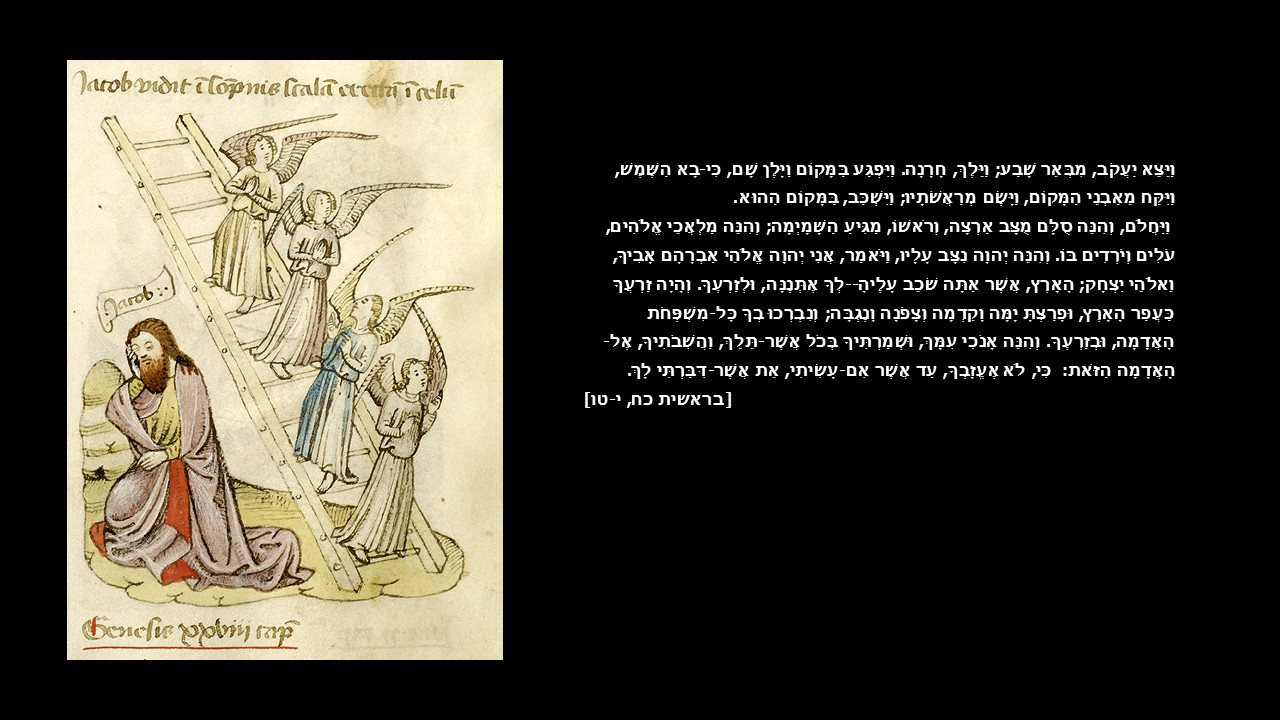 Jacob vidit ī sōpnis scalā erectā ī celū
Jacob
Genesis xxviii cap̄
וַיֵּצֵא יַעֲקֹב, מִבְּאֵר שָׁבַע; וַיֵּלֶךְ, חָרָנָה. וַיִּפְגַּע בַּמָּקוֹם וַיָּלֶן שָׁם, כִּי-בָא הַשֶּׁמֶשׁ,
וַיִּקַּח מֵאַבְנֵי הַמָּקוֹם, וַיָּשֶׂם מְרַאֲשֹׁתָיו; וַיִּשְׁכַּב, בַּמָּקוֹם הַהוּא.
וַיַּחֲלֹם, וְהִנֵּה סֻלָּם מֻצָּב אַרְצָה, וְרֹאשׁוֹ, מַגִּיעַ הַשָּׁמָיְמָה; וְהִנֵּה מַלְאֲכֵי אֱלֹהִים,
עֹלִים וְיֹרְדִים בּוֹ. וְהִנֵּה יְהוָה נִצָּב עָלָיו, וַיֹּאמַר, אֲנִי יְהוָה אֱלֹהֵי אַבְרָהָם אָבִיךָ,
וֵאלֹהֵי יִצְחָק; הָאָרֶץ, אֲשֶׁר אַתָּה שֹׁכֵב עָלֶיהָ--לְךָ אֶתְּנֶנָּה, וּלְזַרְעֶךָ. וְהָיָה זַרְעֲךָ
כַּעֲפַר הָאָרֶץ, וּפָרַצְתָּ יָמָּה וָקֵדְמָה וְצָפֹנָה וָנֶגְבָּה; וְנִבְרְכוּ בְךָ כָּל-מִשְׁפְּחֹת
הָאֲדָמָה, וּבְזַרְעֶךָ. וְהִנֵּה אָנֹכִי עִמָּךְ, וּשְׁמַרְתִּיךָ בְּכֹל אֲשֶׁר-תֵּלֵךְ, וַהֲשִׁבֹתִיךָ, אֶל-
הָאֲדָמָה הַזֹּאת: כִּי, לֹא אֶעֱזָבְךָ, עַד אֲשֶׁר אִם-עָשִׂיתִי, אֵת אֲשֶׁר-דִּבַּרְתִּי לָךְ.
[בראשית כח, י-טו]